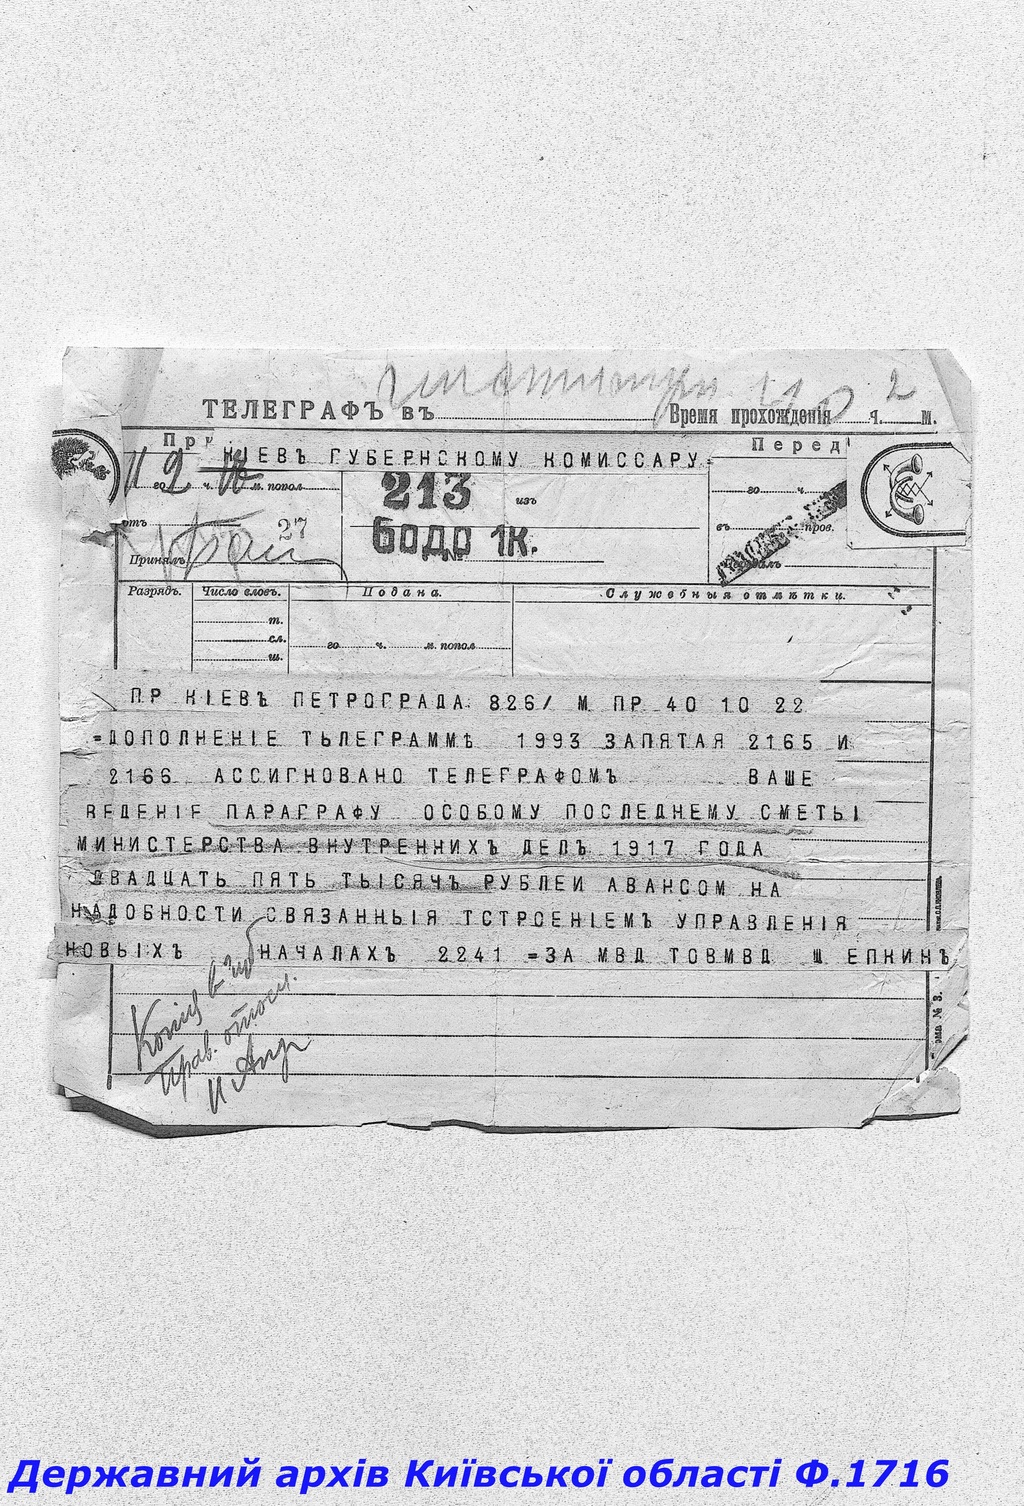 ТЕЛЕГРАФЪ въ
Время прохожденія ч. 2 м.
КІЕВЪ ГУБЕРНСКОМУ КОМИССАРУ=
Перед
го ч. м. попол
213 изъ
го ч.
отъ 27
БОДО 1К.
въ пров.
Принялъ
№
Разрядъ. Число словъ. Подана. Служебныя отмѣтки.
т.
сл.
го ч. м. попол
ш.
ПР КІЕВЪ ПЕТРОГРАДА 826/ М ПР 40 10 22
=ДОПОЛНЕНІЕ ТЬЛЕГРАММЕ 1993 ЗАПЯТАЯ 2165 И
2166 АССИГНОВАНО ТЕЛЕГРАФОМЪ ВАШЕ
ВЕДЕНІЕ ПАРАГРАФУ ОСОБОМУ ПОСЛЕДНЕМУ СМЕТЫ
МИНИСТЕРСТВА ВНУТРЕННИХЪ ДЕЛЪ 1917 ГОДА
ДВАДЦАТЬ ПЯТЬ ТЫСЯЧЪ РУБЛЕИ АВАНСОМ НА
НАДОБНОСТИ СВЯЗАННЫЯ ТСТРОЕНІЕМЪ УПРАВЛЕНІЯ
НОВЫХЪ НАЧАЛАХЪ 2241 =ЗА МВД ТОВМВД Щ ЕПКИНЪ
Копія в
Прав.
Державний архів Київської області Ф.1716